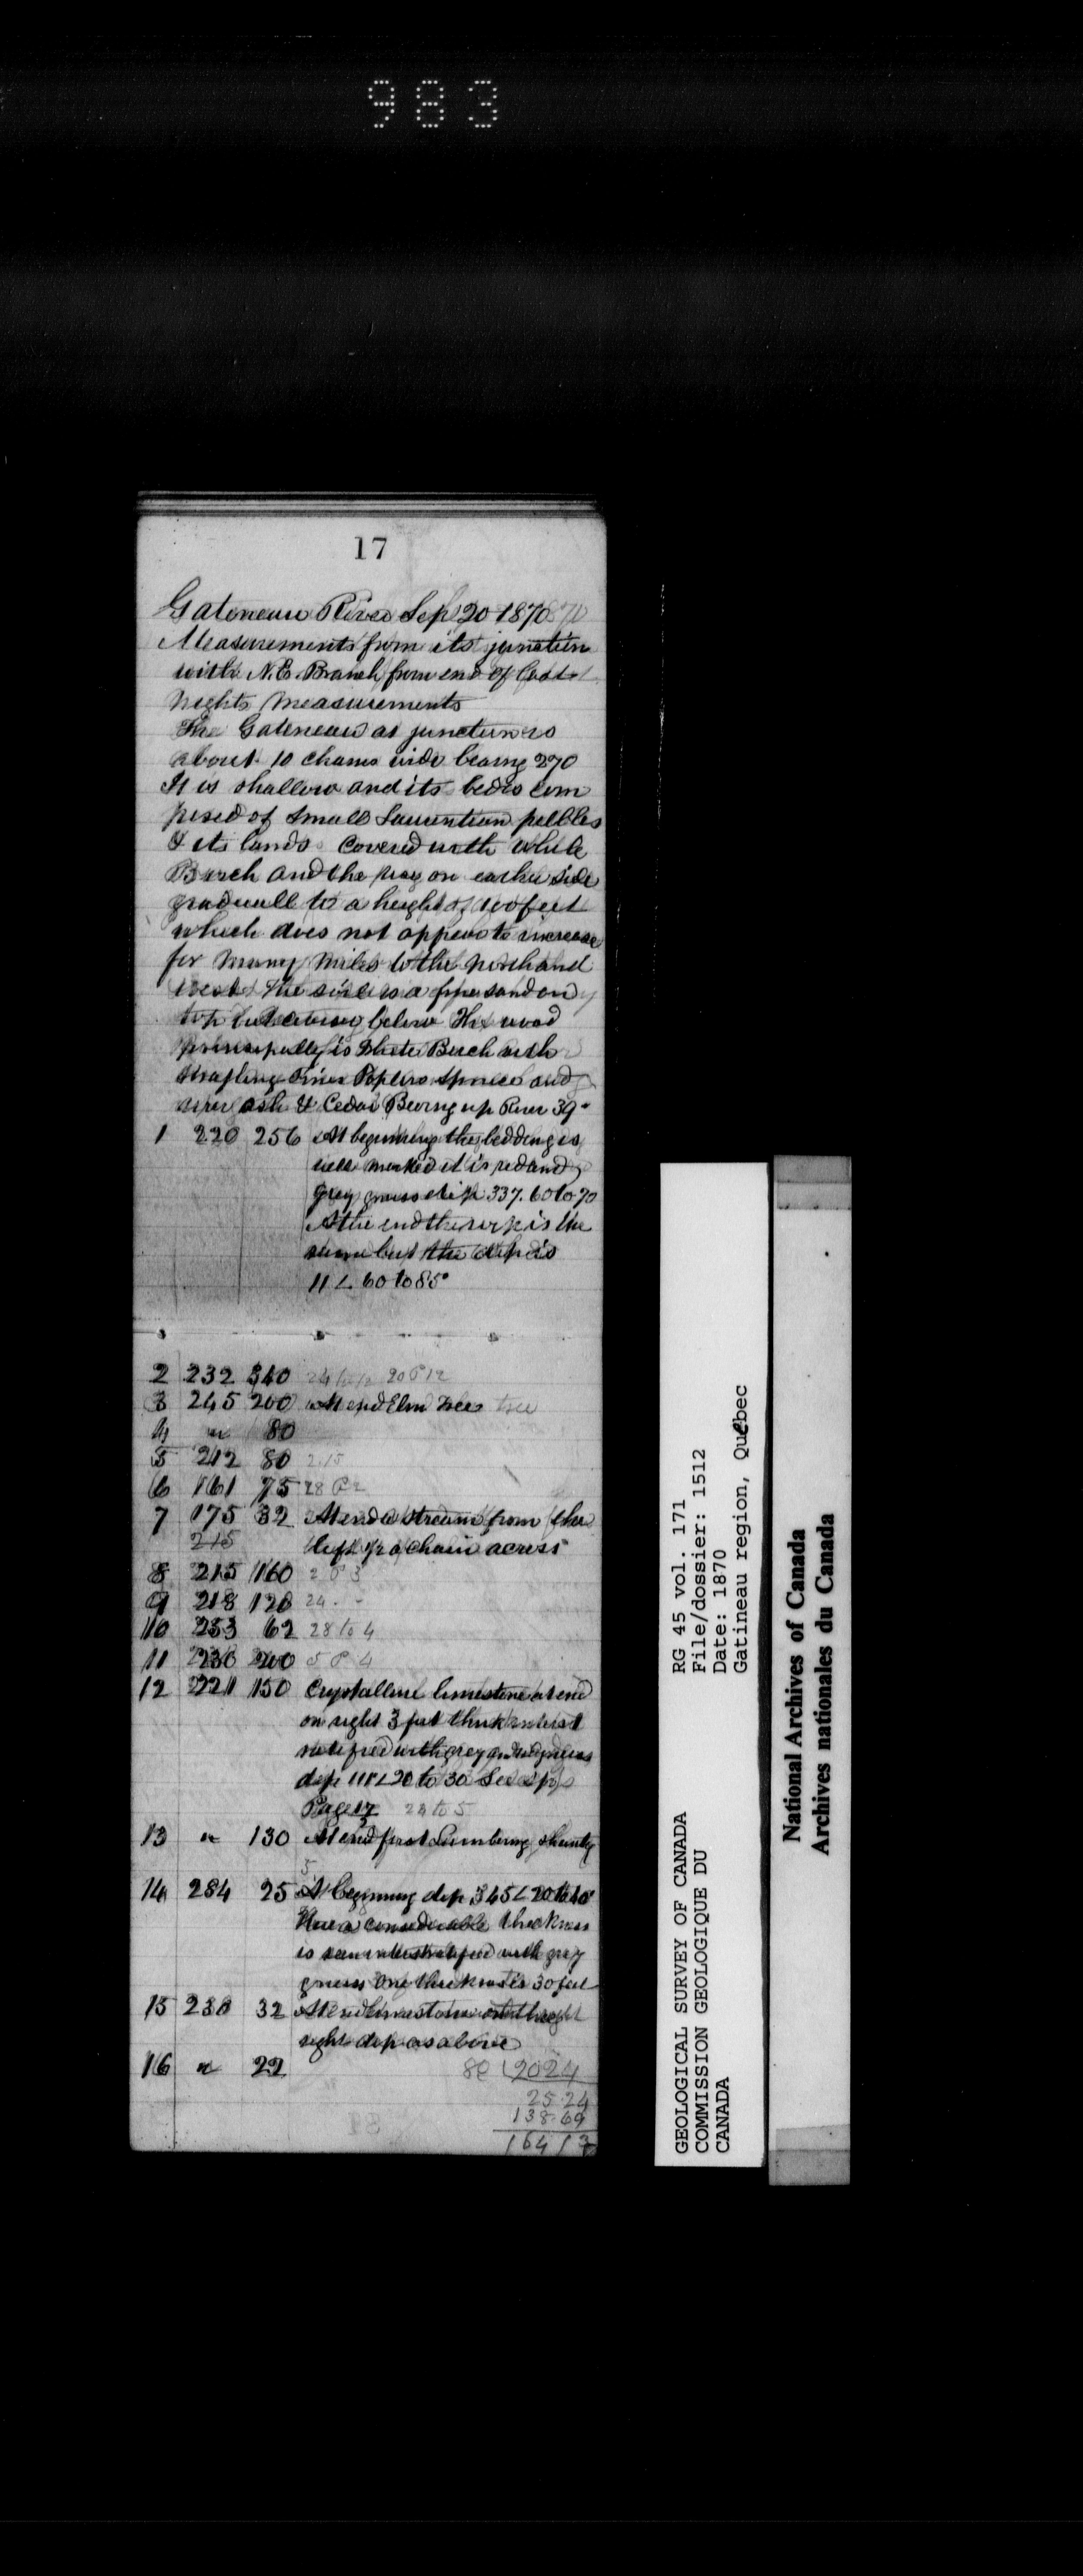 983
17
Gateneau River Sep 20 1870
Measurements from its junction
with N.E. Branch from end of last
nights measurements
The Gateneau at junction is
about 10 chains wide bearing 270
It is shallow and its bed is com
posed of small Laurentian pebbles
& its lands covered with white
Birch and the on either side
graduall to a height of feet
which does not appear to increase
for many miles to the north and
west The is a sand on
top but below The wood
principally is White Birch with
Pines Poplars Spruce and
ash & Cedar Bearing up River 39°
1 220 256 At beginning the bedding is
well marked it is red and
grey gneiss dip 337. 60 to 70
At the end the is the
same but the dip is
11 ∠ 60 to 85°
2 232 340
3 245 200 At end Elm Tree tree
4 " 80
5 242 80 2.15
6 161 75
7 175 32 At end a stream from the
215 left ½ a chain across
8 215 160
9 218 120 24. -
10 253 62 28 to 4
11 230 200
12 221 150 Crystalline limestone at end
on right 3 feet thick interst
ratified with grey and red gneiss
dip ∠ 20 to 30 See
Page 17 24 to 5
13 " 130 At end first Lumbering shanty
5
14 284 25 At beginning dip 345 ∠ 20 to 40°
Here a considerable thickness
is seen interstratified with grey
gneiss One thickness is 30 feet
15 230 32 At end limestone on the
right dip as above
16 " 22
80 2024
25.24
138.69
164 13
GEOLOGICAL SURVEY OF CANADA
COMMISSION GEOLOGIQUE DU
CANADA
RG 45 vol. 171
File/dossier: 1512
Date: 1870
Gatineau region, Québec
National Archives of Canada
Archives nationales du Canada